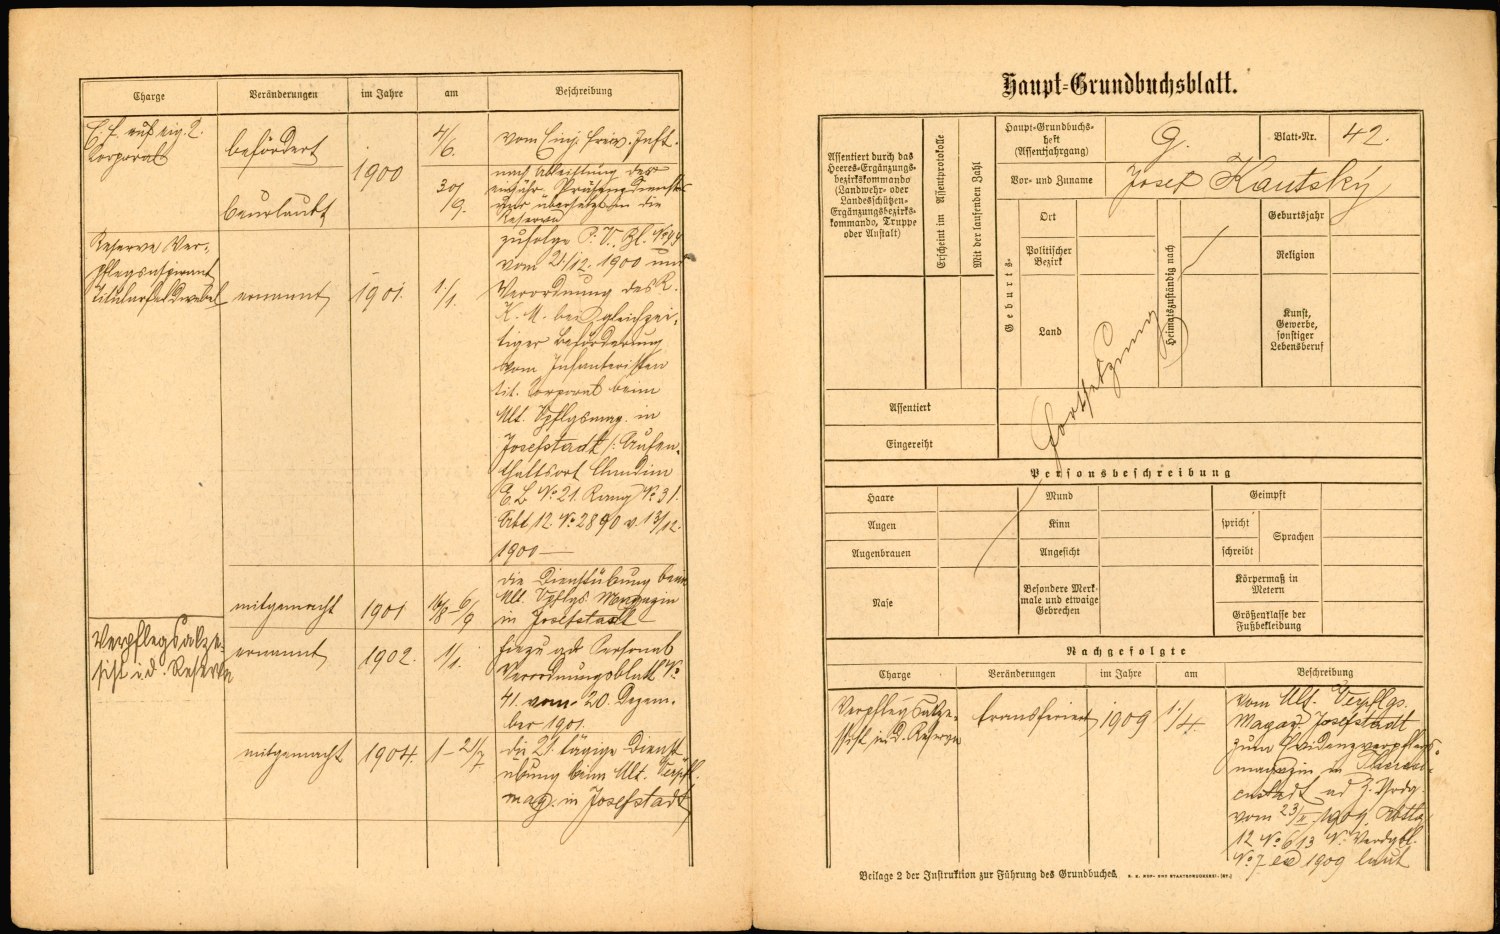 Charge
Veränderungen
im Jahre
am
Beschreibung
Corporal
befördert
1900
4/6.
vom Einj. Freiw. Inft.
beurlaubt
30/9.
nach Ableistung des
einjähr. Präsenzdienstes
und übersetzt in die
Reserve
Reserve Ver-
pflegsaspirant
Titularfeldwebel
ernannt
1901.
1./1.
zufolge P. V. Bl. No 44
vom 21/12. 1900 und
Verordnung des R.
K. M. bei gleichzei-
tiger Beförderung
vom Infanteristen
tit. Corporal beim
Mlt. Vpflgsmag. in
Josefstadt /: Aufen-
thaltsort
E. B. No 21. Rang No 31.
Abt 12. No 2890 v. 13/12.
1900 —
mitgemacht
1901
16/8 - 6/9
die Dienstübung beim
Mlt. Vpflgs. Magazin
in Josefstadt
Verpflegsakze-
sist i. d. Reserve
ernannt
1902.
1/1.
hiezu ad Personal
Verordnungsblatt No
41. vom 20. Dezem-
ber 1901.
mitgemacht
1904.
1 - 21/7
die 21 tägige Dienst
übung beim Mlt. Verpfl.
mag. in Josefstadt
Haupt-Grundbuchsblatt.
Assentiert durch das
Heeres-Ergänzungs-
bezirkskommando
(Landwehr- oder
Landesschützen-
Ergänzungsbezirks-
kommando, Truppe
oder Anstalt)
Erscheint im Assentprotokolle
Mit der laufenden Zahl
Haupt-Grundbuchs-
heft
(Assentjahrgang)
9.
Blatt-Nr.
42.
Vor- und Zuname
Josef Kautsky
Geburts-
Ort
Politischer
Bezirk
Land
Heimatszuständig nach
Geburtsjahr
Religion
Kunst,
Gewerbe,
sonstiger
Lebensberuf
Fortsetzung
Assentiert
Eingereiht
Personsbeschreibung
Haare
Mund
Geimpft
Augen
Kinn
spricht
Sprachen
Augenbrauen
Angesicht
schreibt
Nase
Besondere Merk-
male und etwaige
Gebrechen
Körpermaß in
Metern
Größenklasse der
Fußbekleidung
Nachgefolgte
Charge
Veränderungen
im Jahre
am
Beschreibung
Verpflegsakze-
ssist in d. Reserve
transferiert
1909
1./4.
vom Mlt. Verpflgs.
Magaz. Josefstadt
zum Evidenzverpflegs-
magazin in Theresi-
enstadt ad
vom 23/II. 1909. Abtlg
12 No 613 N. Verdgbl.
No 7 ex 1909 laut
Beilage 2 der Instruktion zur Führung des Grundbuches.
K. K. HOF- UND STAATSDRUCKEREI. (ST.)